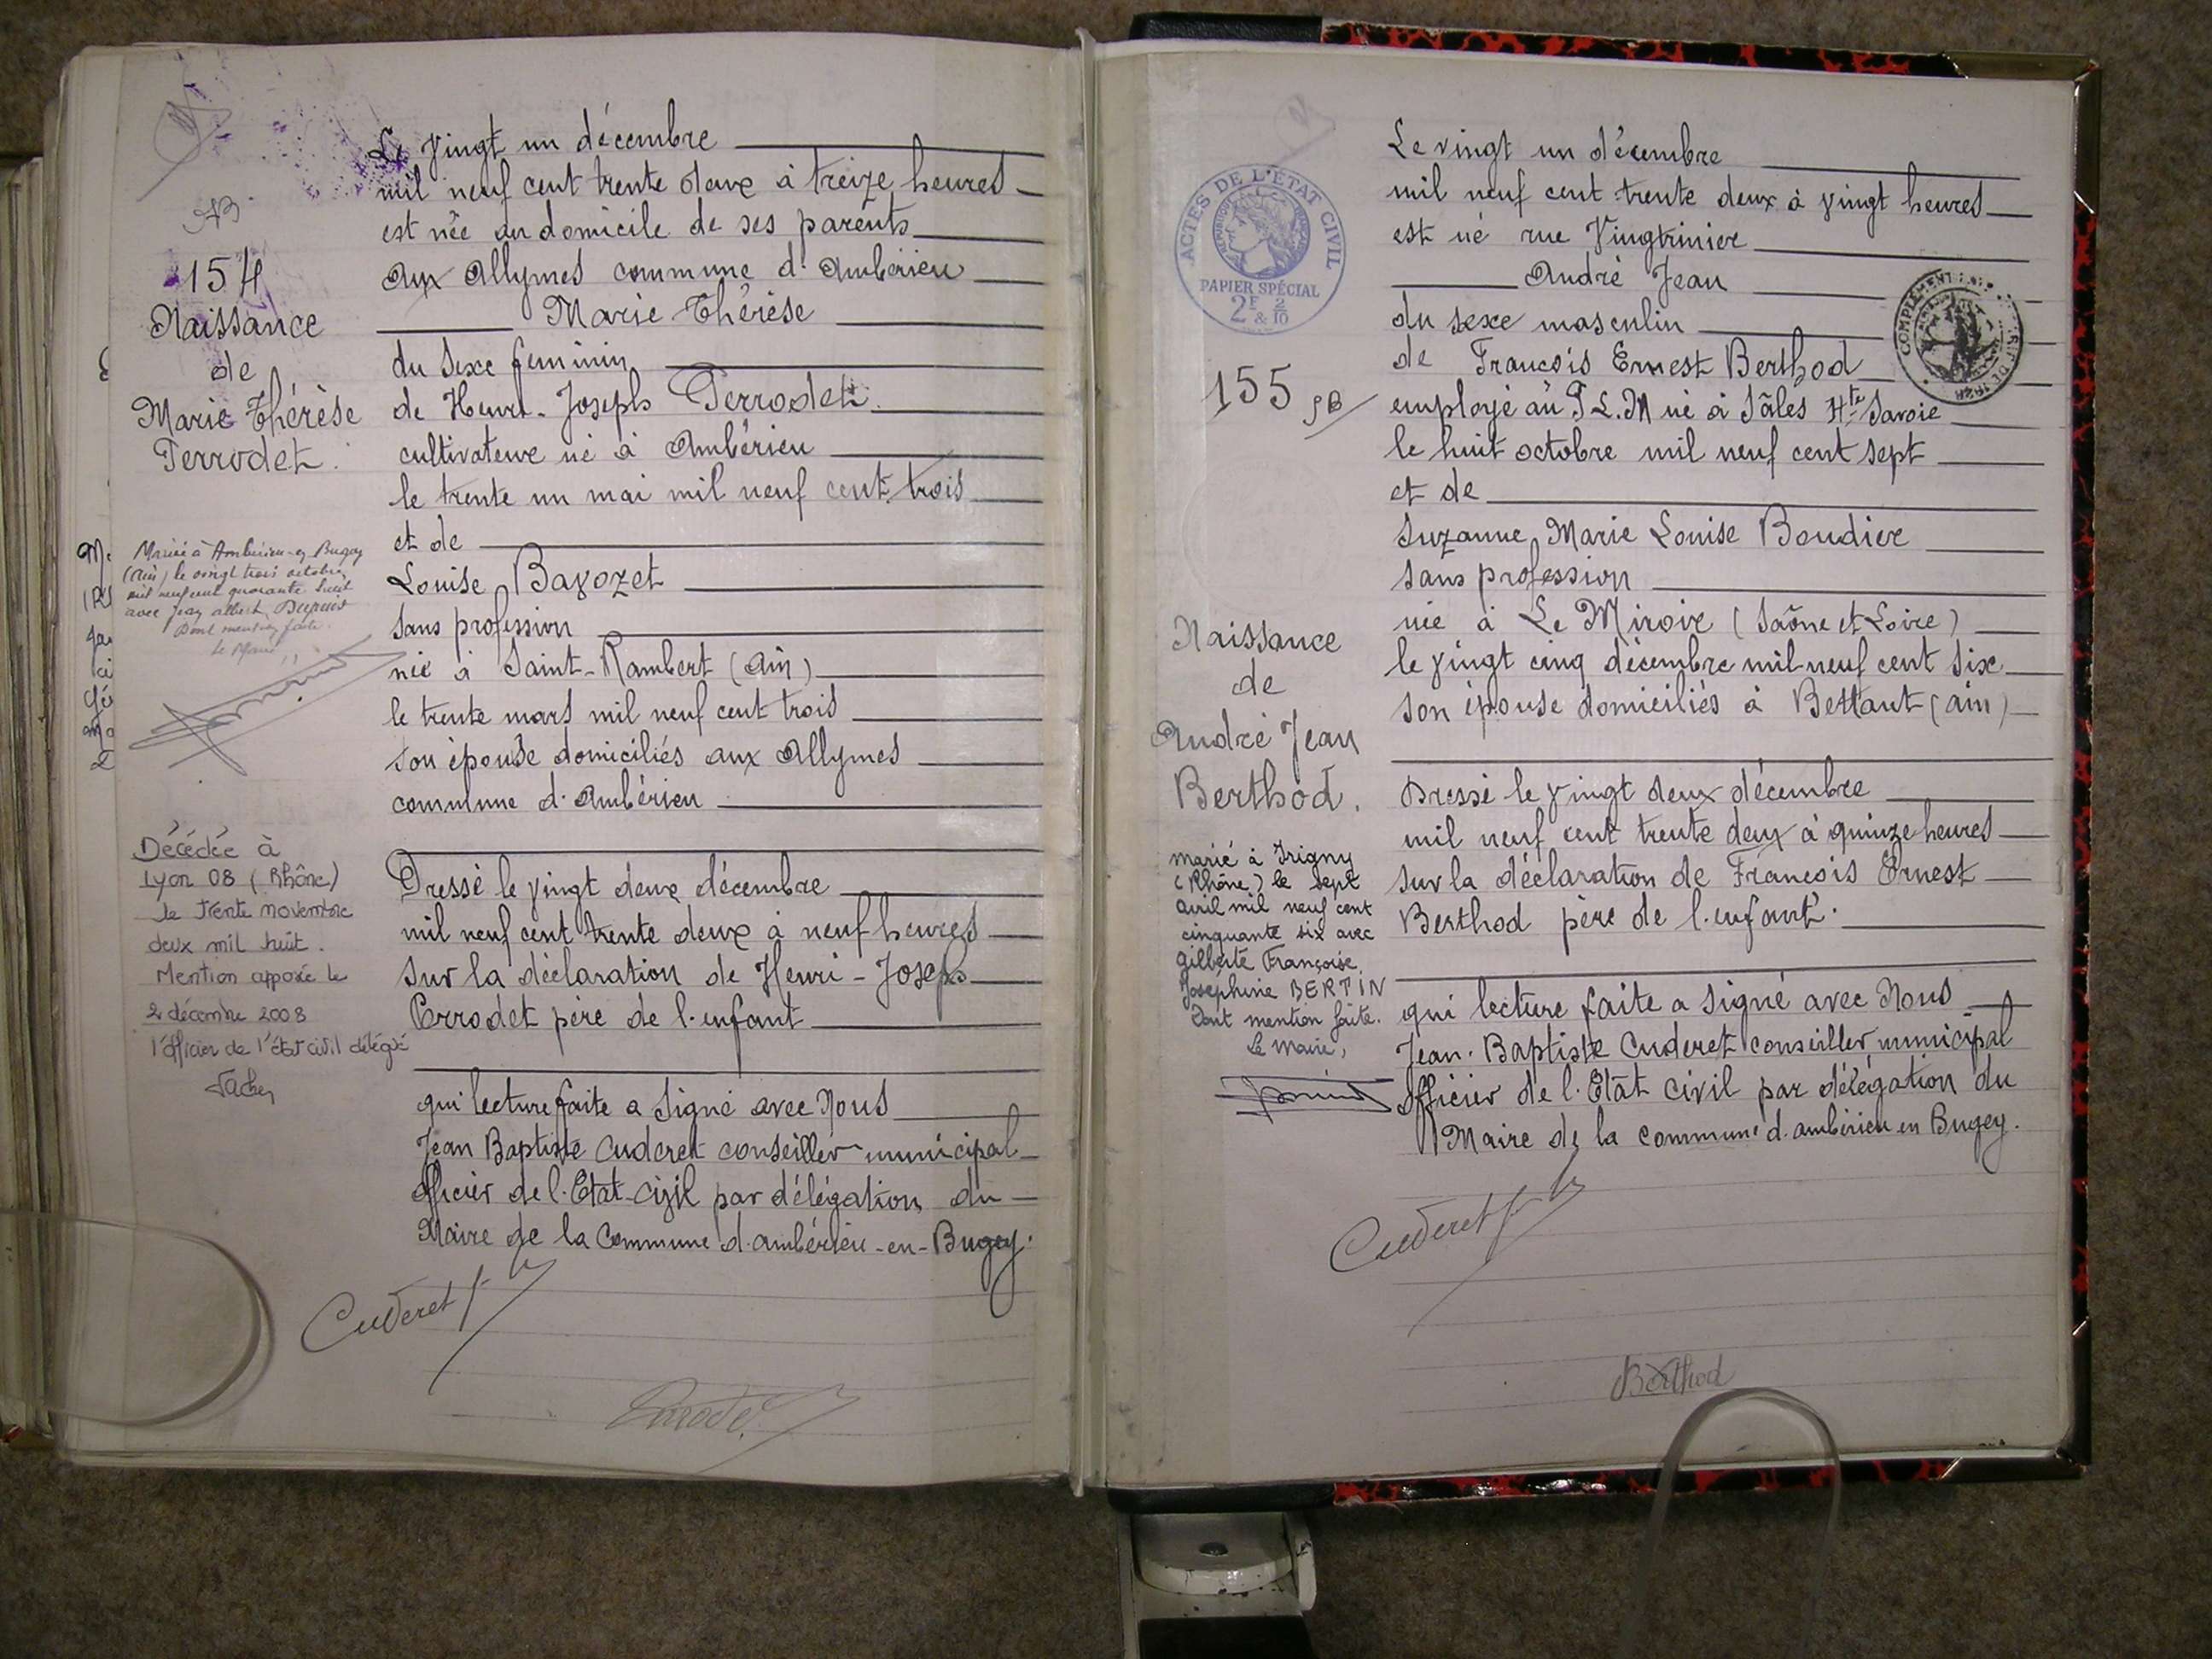 154
Naissance
de
Marie Thérèse
Perrodet.
Mariée à Ambérieu-en-Bugey
(Ain) le vingt trois octobre
mil neuf cent quarante huit
avec Jean Albert Dupuis
Dont mention faite.
Le Maire,
Décédée à
Lyon 08 (Rhône)
le trente novembre
deux mil huit.
Mention apposée le
2 décembre 2008
l'officier de l'état civil délégué
Le vingt un décembre
mil neuf cent trente deux à treize heures
est née au domicile de ses parents
aux Allymes commune d'Ambérieu
Marie Thérèse
du sexe feminin
de Henri-Joseph Perrodet.
cultivateur né à Ambérieu
le trente un mai mil neuf cent trois
et de
Louise Bavozet
sans profession
née à Saint-Rambert (Ain)
le trente mars mil neuf cent trois
son épouse domiciliés aux Allymes
commune d'Ambérieu
Dressé le vingt deux décembre
mil neuf cent trente deux à neuf heures
sur la déclaration de Henri-Joseph
Perrodet père de l'enfant
qui lecture faite a signé avec Nous
Jean Baptiste Cuderet conseiller municipal
officier de l'Etat-Civil par délégation du
Maire de la Commune d'Ambérieu-en-Bugey.
Cuderet
Perrodet
ACTES DE L'ÉTAT CIVIL
RÉPUBLIQUE FRANÇAISE
PAPIER SPÉCIAL
2F & 2/10
155
Naissance
de
André Jean
Berthod.
marié à Irigny
(Rhône) le sept
avril mil neuf cent
cinquante six avec
Gilberte Françoise
Joséphine BERTIN
Dont mention faite.
Le Maire,
Le vingt un décembre
mil neuf cent trente deux à vingt heures
est né rue Vingtrinier
André Jean
du sexe masculin
de François Ernest Berthod
employé au P.L.M né à Sâles Hte Savoie
le huit octobre mil neuf cent sept
et de
Suzanne Marie Louise Boudier
sans profession
née à Le Miroir (Saône et Loire)
le vingt cinq décembre mil neuf cent six
son épouse domiciliés à Bettant (Ain)
Dressé le vingt deux décembre
mil neuf cent trente deux à quinze heures
sur la déclaration de François Ernest
Berthod père de l'enfant.
qui lecture faite a signé avec Nous
Jean-Baptiste Cuderet conseiller municipal
officier de l'Etat Civil par délégation du
Maire de la commune d'Ambérieu en Bugey.
Cuderet
Berthod